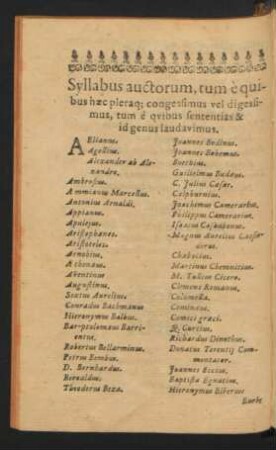 Syllabus auctorum, tum è qui-
bus hæc pleraq; congessimus vel digessi-
mus, tum è qvibus sententias &
id genus laudavimus.
AElianus.
Agellius.
Alexander ab Ale-
xandro.
Ambrosius.
Ammianus Marcellus.
Antonius Arnaldi.
Appianus.
Apulejus.
Aristophanes.
Aristoteles.
Arnobius.
Athenæus.
Aventinus
Augustinus.
Sextus Aurelius.
Conradus Bachmanus
Hieronymus Balbus.
Bartolomæus Barri-
entus.
Robertus Bellarminus.
Petrus Bembus.
D. Bernhardus.
Beroaldus.
Theodorus Beza.
Joannes Bodinus.
Joannes Bohemus.
Boethius.
Guilielmus Budæus.
C. Julius Cæsar.
Calphurnius.
Joachimus Camerarius.
Philippus Camerarius.
Isaacus Casaubonus.
Magnus Aurelius Cassio-
dorus.
Chabotius.
Martinus Chemnitius.
M. Tullius Cicero.
Clemens Romanus.
Columella.
Cominæus.
Comici græci.
Q. Curtius.
Richardus Dinothus.
Donatus Terentij Com-
mentator.
Joannes Eccius.
Baptista Egnatius.
Hieronymus Elberus